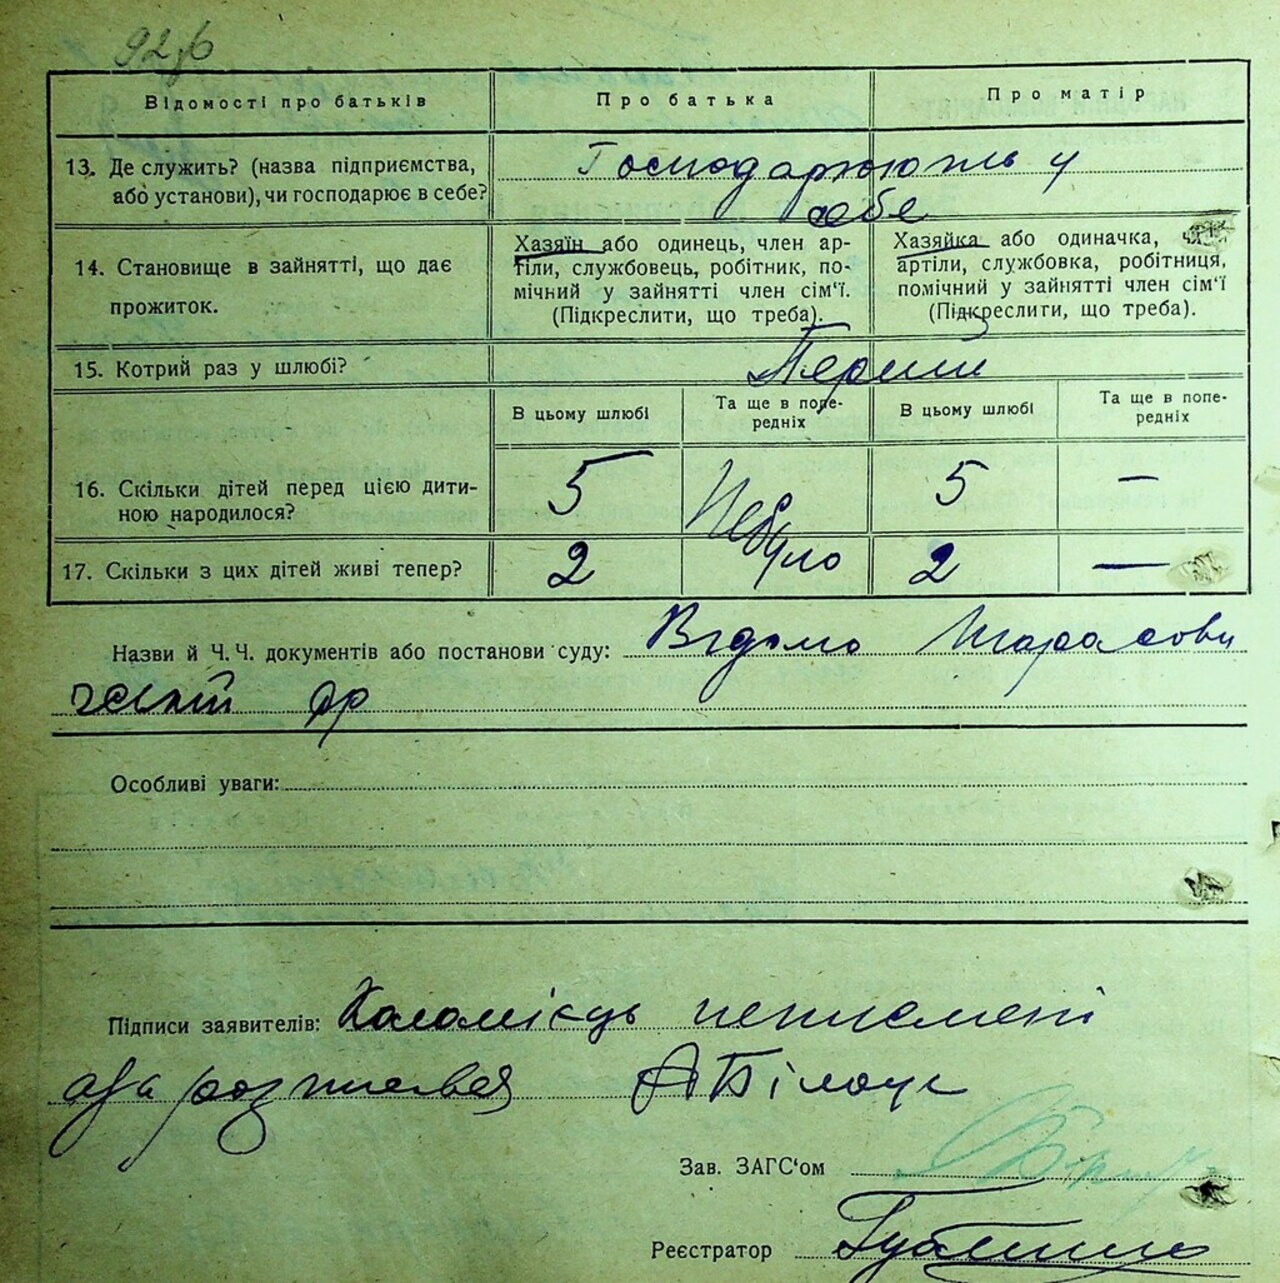 92зб
Відомості про батьків Про батька Про матір
13. Де служить? (назва підприємства, Господарюють у
або установи), чи господарює в себе? себе
14. Становище в зайнятті, що дає
прожиток.
Хазяїн або одинець, член ар-
тілі, службовець, робітник, по-
мічний у зайнятті член сім'ї.
(Підкреслити, що треба).
Хазяйка або одиначка, член
артіли, службовка, робітниця,
помічний у зайнятті член сім'ї
(Підкреслити, що треба).
15. Котрий раз у шлюбі? Перший
В цьому шлюбі Та ще в попе-
редніх В цьому шлюбі Та ще в попе-
редніх
16. Скільки дітей перед цією дити-
ною народилося? 5 Небуло 5 —
17. Скільки з цих дітей живі тепер? 2 2 —
Назви й Ч. Ч. документів або постанови суду: Відомо Тарасови
ській
Особливі уваги:
Підписи заявителів: Коломієць неписмені
за розписався АБілоус
Зав. ЗАГС'ом
Реєстратор